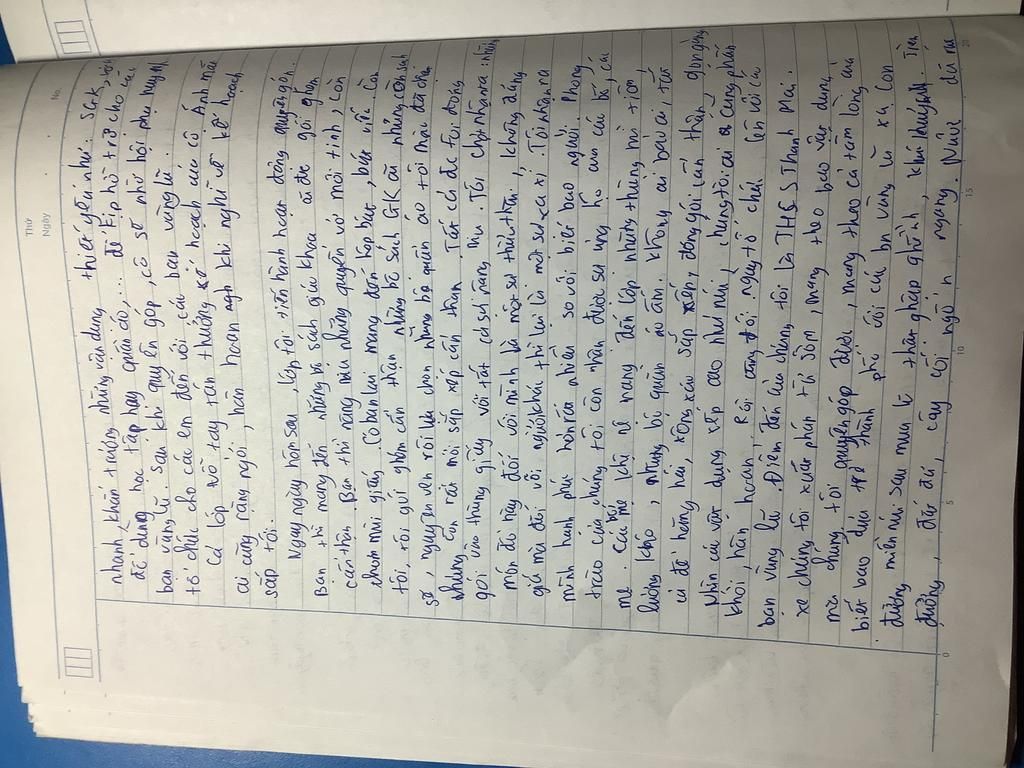 Thứ
Ngày
No.
nhanh, khẩn trương những vân dụng thiết yếu như: SGK,
đồ dùng học tập hay quần áo, ... để kịp hỗ trợ cho các
bạn vùng lũ. Sau khi quyên góp, cô sẽ nhờ hội phụ huynh
tổ chức cho các em đến với các bạn vùng lũ.
Cả lớp vỗ tay tán thưởng kế hoạch của cô Ánh mà
ai cũng rạng ngời, hân hoan khi nghĩ về kế hoạch
sắp tới.
Ngay ngày hôm sau, lớp tôi tiến hành hoạt động quyên góp.
Bạn thì mang đến những bộ sách giáo khoa cũ được gói ghém
cẩn thận. Bạn thì nâng niu những quyển vở mới tinh, còn
thơm mùi giấy. Có bạn lại mang đến hộp bút, bút viết. Còn
tôi, tôi gói ghém cẩn thận những bộ sách GK cũ
sẽ, nguyên vẹn rồi lựa chọn những bộ quần áo tôi mới
những con mới sắp xếp cẩn thận. Tất cả được tôi đóng
gói vào thùng giấy với tất cả sự nâng niu. Tôi chợt nhận ra những
món đồ này đối với mình là một sự thừa thãi, không đáng
giá mà đối với người khác thì lại là một sự xa xỉ. Tôi nhận ra
mình hạnh phúc hơn rất nhiều so với biết bao người. Phong
trào của chúng tôi còn nhận được sự ủng hộ của các bố, các
mẹ. Các bố mẹ lặng lẽ mang đến lớp những thùng mì tôm,
lương khô, những bộ quần áo ấm. Không ai bảo ai, tất
cả đổ hàng hóa, xong xếu sắp xếp, đóng gói cẩn thận, gọn gàng.
Nhìn các vật dụng xếp cao như núi, chúng tôi ai cũng phấn
khởi, hân hoan. Rồi cũng đến ngày tổ chức lên với các
bạn vùng lũ. Điểm đến của chúng tôi là THCS Thanh Mai.
xe chúng tôi xuất phát từ sớm, mang theo bao vật dụng
mà chúng tôi quyên góp được, mang theo cả tấm lòng của
biết bao đứa trẻ thành phố với các bạn vùng lũ xa. Con
đường miền núi sau mưa lũ thật gập ghềnh, khúc khuỷu. Trên
đường, đất đá, cây cối ngổn ngang. Nước đã rút
0
5
10
15
20